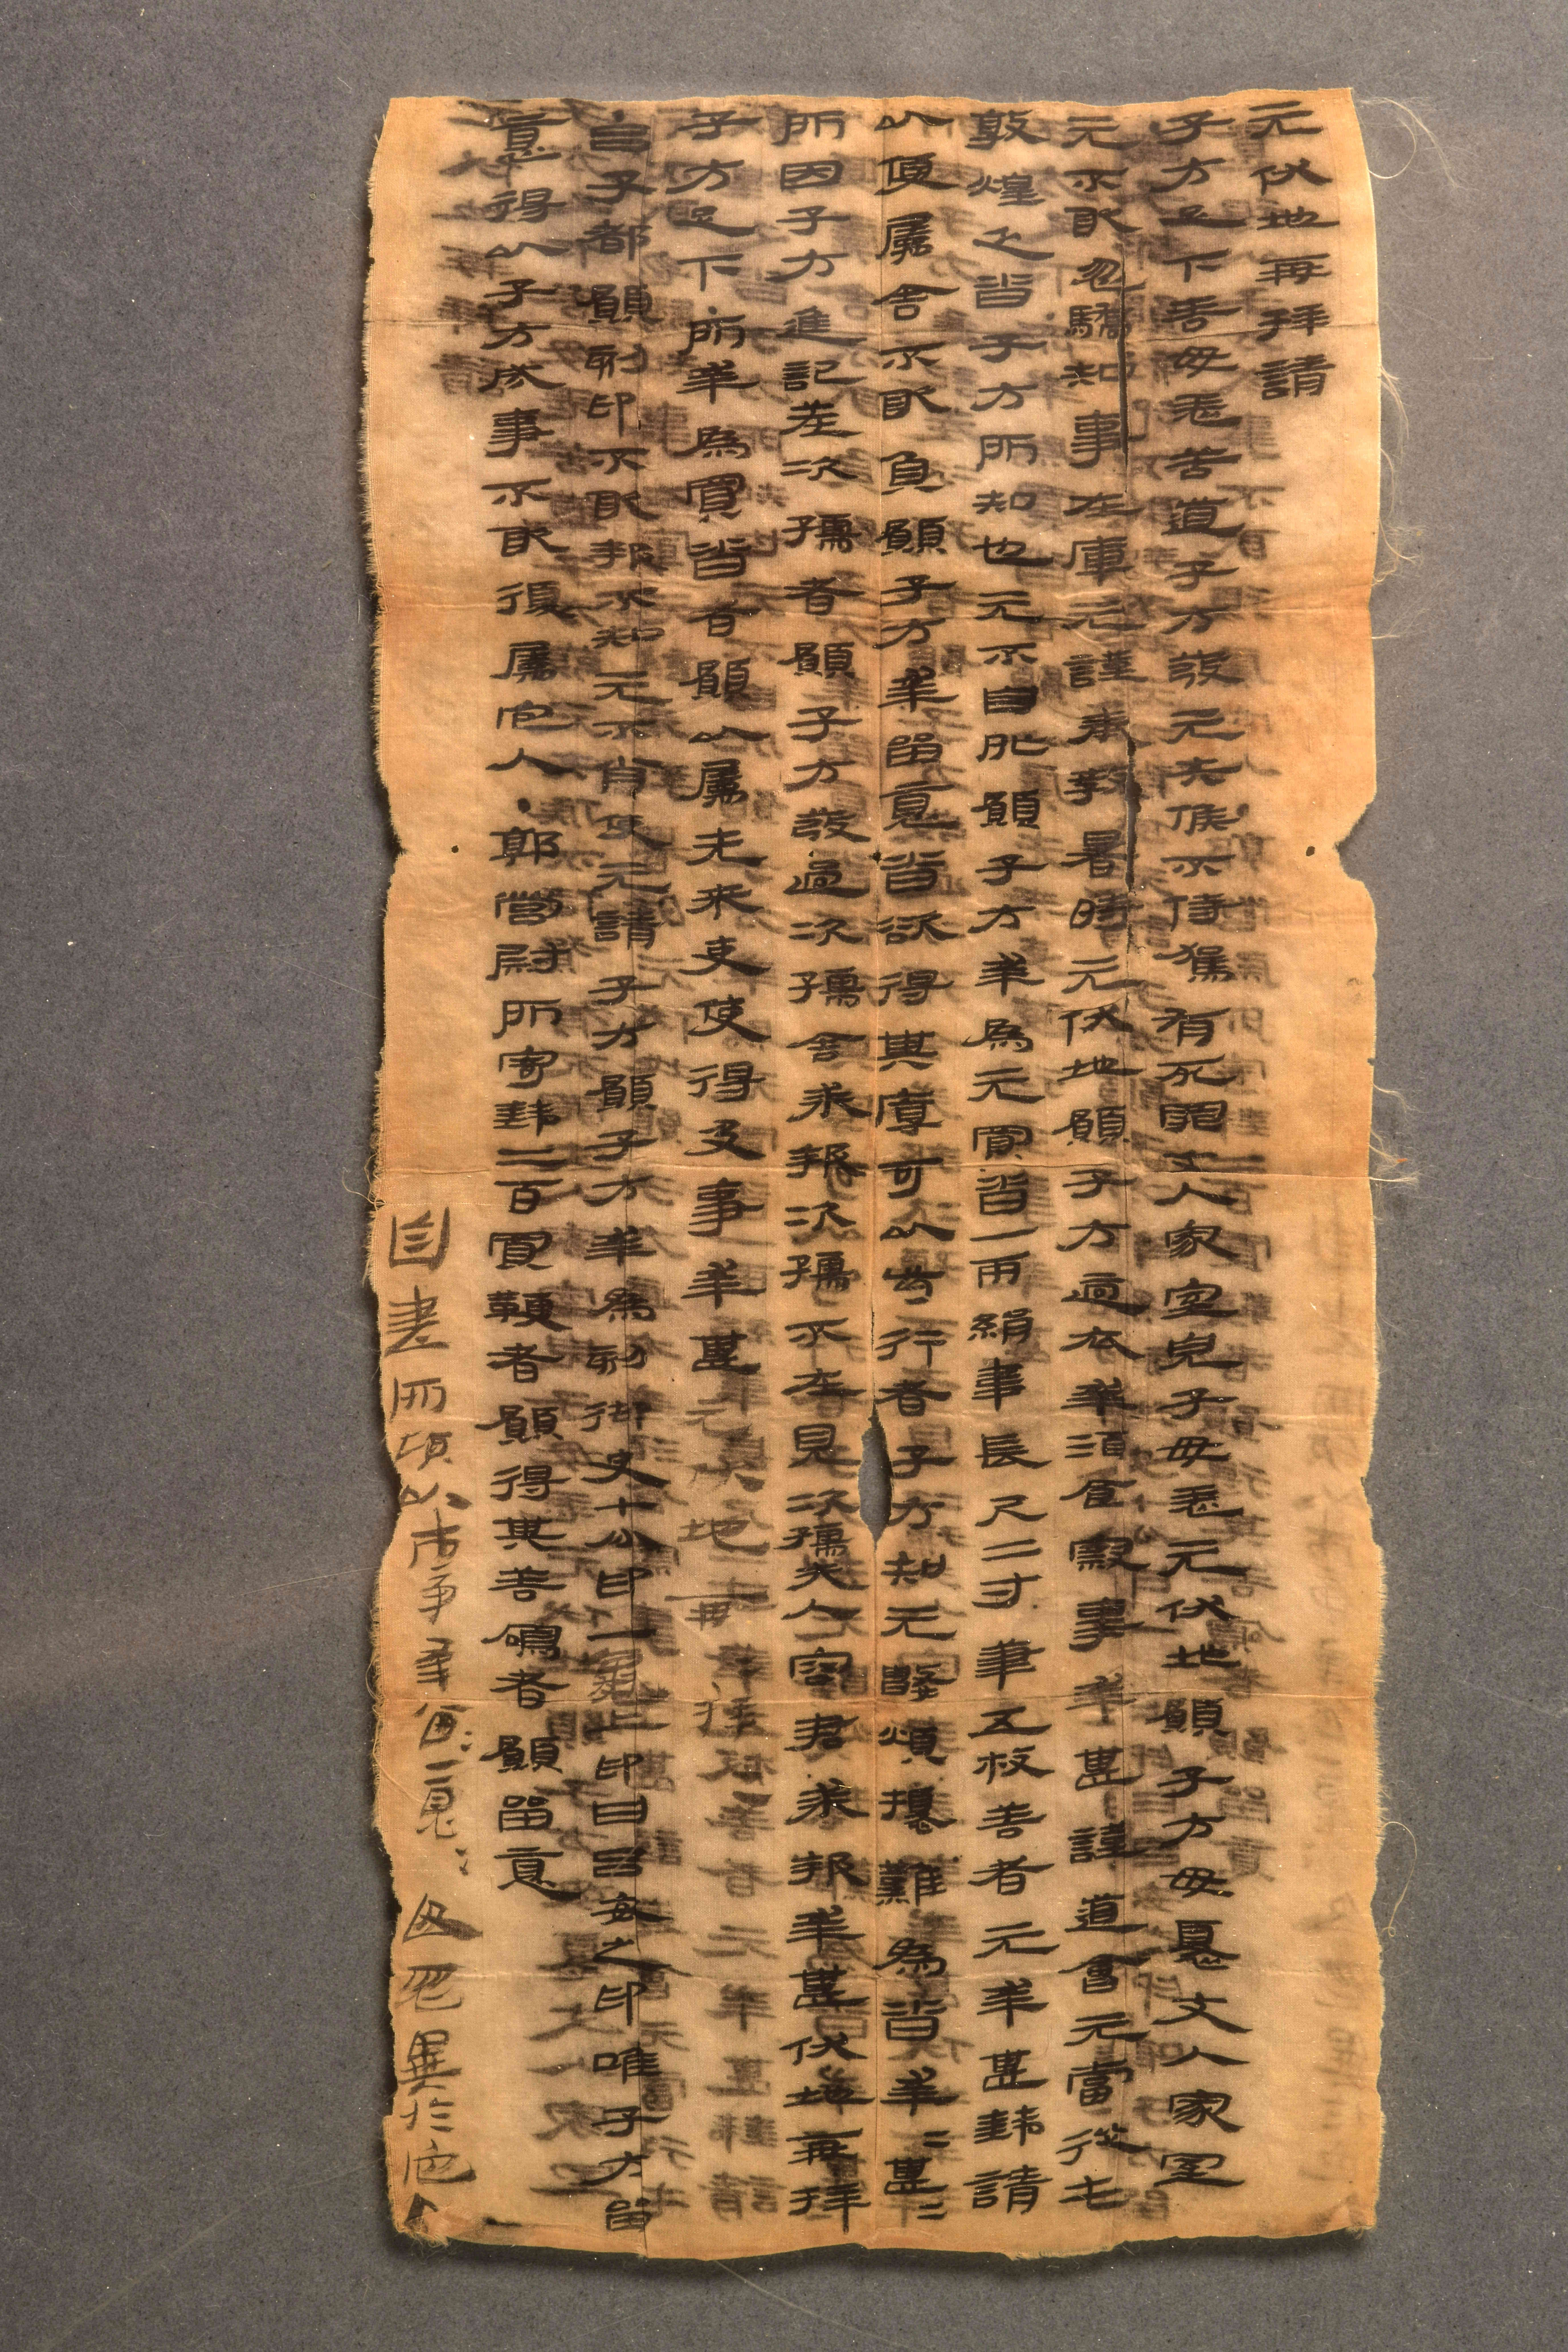 元伏地再拜請
子方足下善毋恙苦道子方發元失候不侍駕有死罪丈人家室兒子毋恙元伏地願子方毋憂丈人家室
元不敢忽驕知事在庫元謹奉教暑時元伏地願子方適衣幸酒食察事幸甚謹道會元當從屯
敦煌乏沓子方所知也元不自外願子方幸為元買沓一兩絹韋長尺二寸筆五枚善者元幸甚錢請
以便屬舍不敢負願子方幸留意沓欲得其厚可以步行者子方知元數煩擾難為沓幸=甚=
所因子方進記差次孺者願子方發過次孺舍求報次孺不在見次孺夫人容君求報幸甚伏地再拜
子方足下・所幸為買沓者願以屬先來吏使得及事幸甚元伏地再拜
・呂子都願刻印不敢報不知元不肖使元請子方願子方幸為刻御史七分印一龜上印曰呂安之印唯子方留
意得以子方成事不敢復屬它人・郭營尉所寄錢二百買鞭者願得其善鳴者願留意
自書所願以市事幸留=意=毋忽異於它人